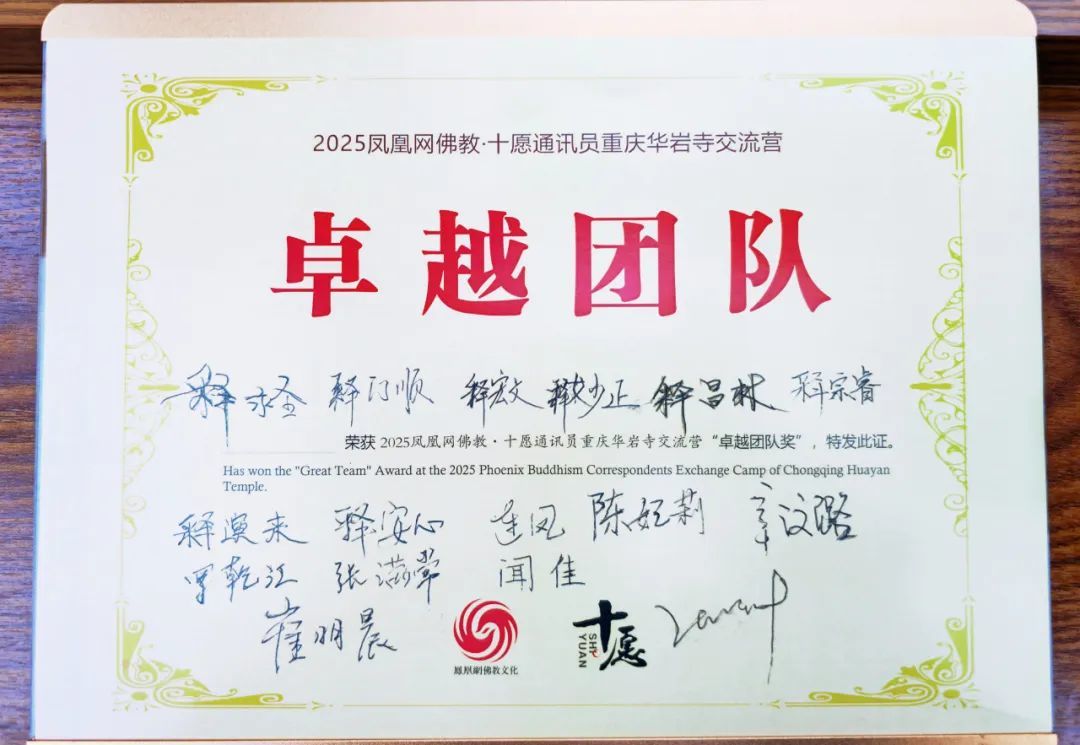 2025凤凰网佛教·十愿通讯员重庆华岩寺交流营
卓越团队
释永圣 释门顺 释宏文 释妙正 释昌林 释宗睿
荣获 2025凤凰网佛教·十愿通讯员重庆华岩寺交流营“卓越团队奖”，特发此证。
Has won the "Great Team" Award at the 2025 Phoenix Buddhism Correspondents Exchange Camp of Chongqing Huayan
Temple.
释演来 释安心 连凤 陈妮莉 章汶璐
罗乾江 张满常 闻佳
崔明晨
鳳凰網佛教文化
十愿
SHI
YUAN